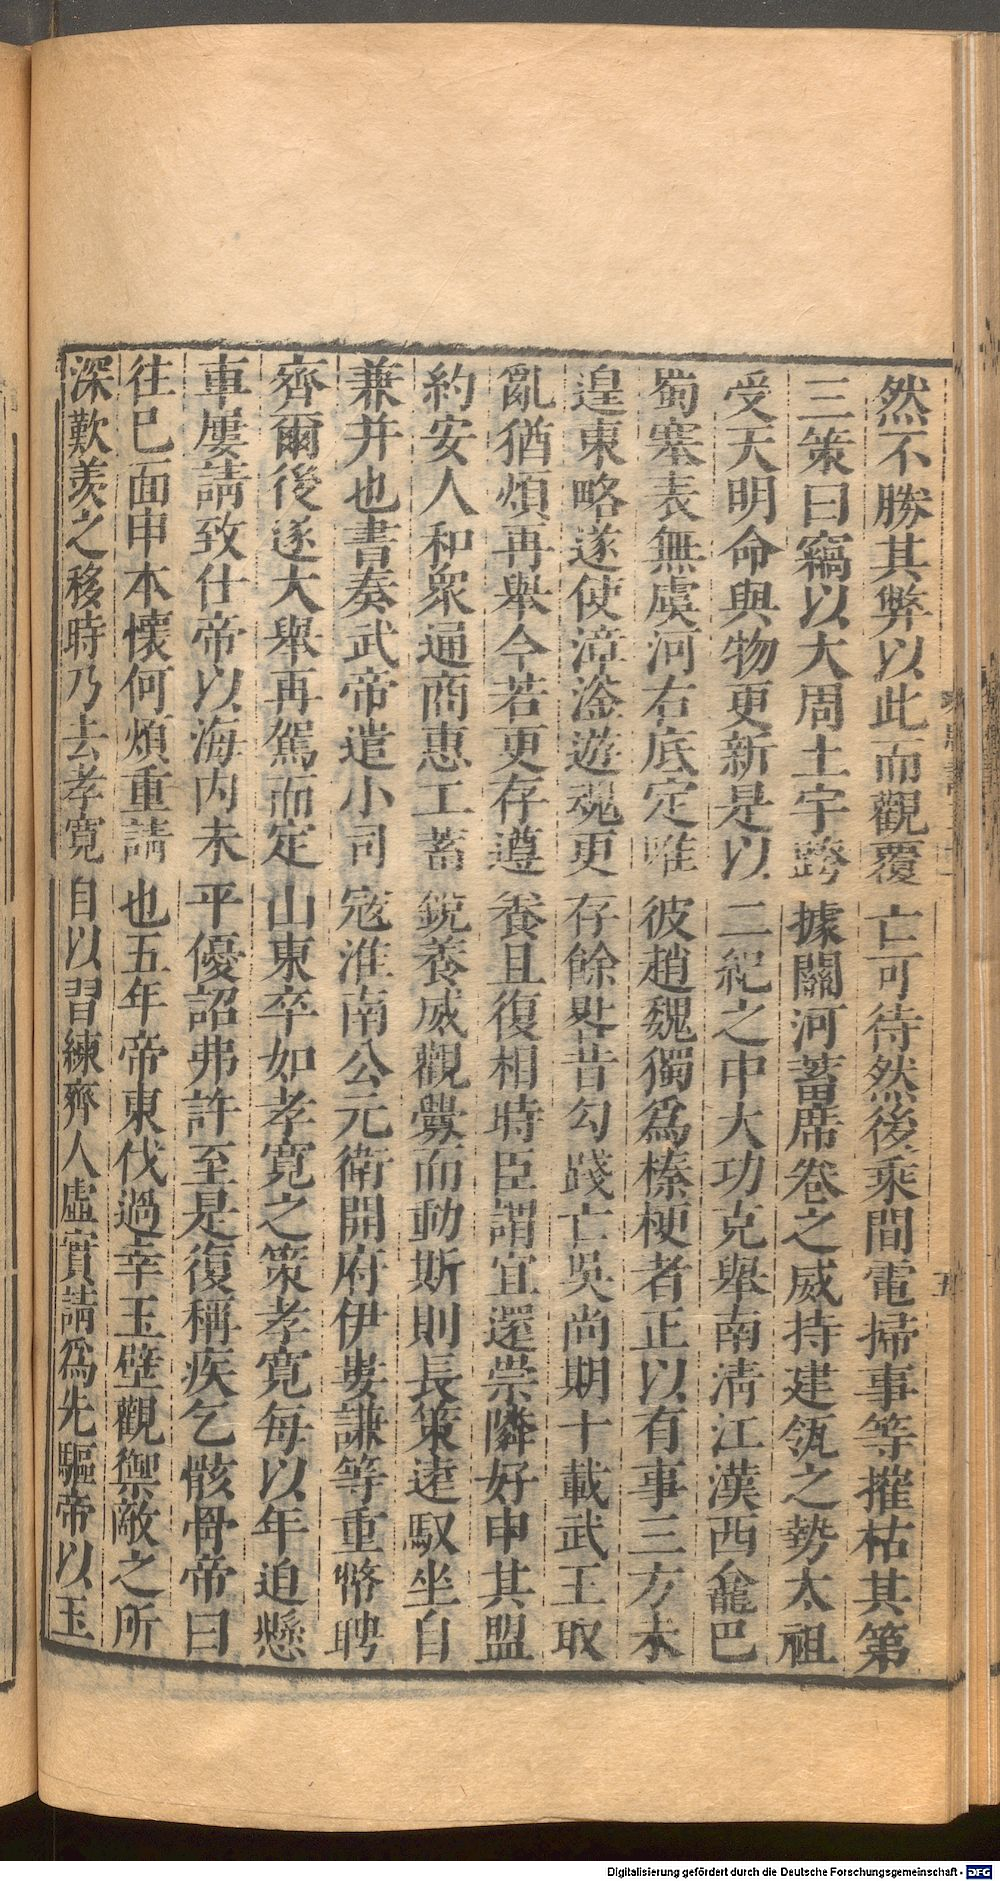 然不勝其弊以此而觀覆亡可待然後乘間電掃事等摧枯其第
三策曰竊以大周土宇跨據關河蓄席卷之威持建瓴之勢太祖
受天明命與物更新是以二紀之中大功克舉南清江漢西龕巴
蜀塞表無虞河右底定唯彼趙魏獨爲榛梗者正以有事三方未
遑東略遂使漳滏遊魂更存餘晷昔勾踐亡吳尚期十載武王取
亂猶煩再舉今若更存遵養且復相時臣謂宜還崇隣好申其盟
約安人和衆通商惠工蓄銳養威觀釁而動斯則長策遠馭坐自
兼并也書奏武帝遣小司寇淮南公元衛開府伊婁謙等重幣聘
齊爾後遂大舉再駕而定山東卒如孝寬之策孝寬每以年迫懸
車屢請致仕帝以海內未平優詔弗許至是復稱疾乞骸骨帝曰
往巳面申本懷何煩重請也五年帝東伐過幸玉壁觀禦敵之所
深歎羡之移時乃去孝寬自以習練齊人虛實請爲先驅帝以玉
五
Digitalisierung gefördert durch die Deutsche Forschungsgemeinschaft - DFG